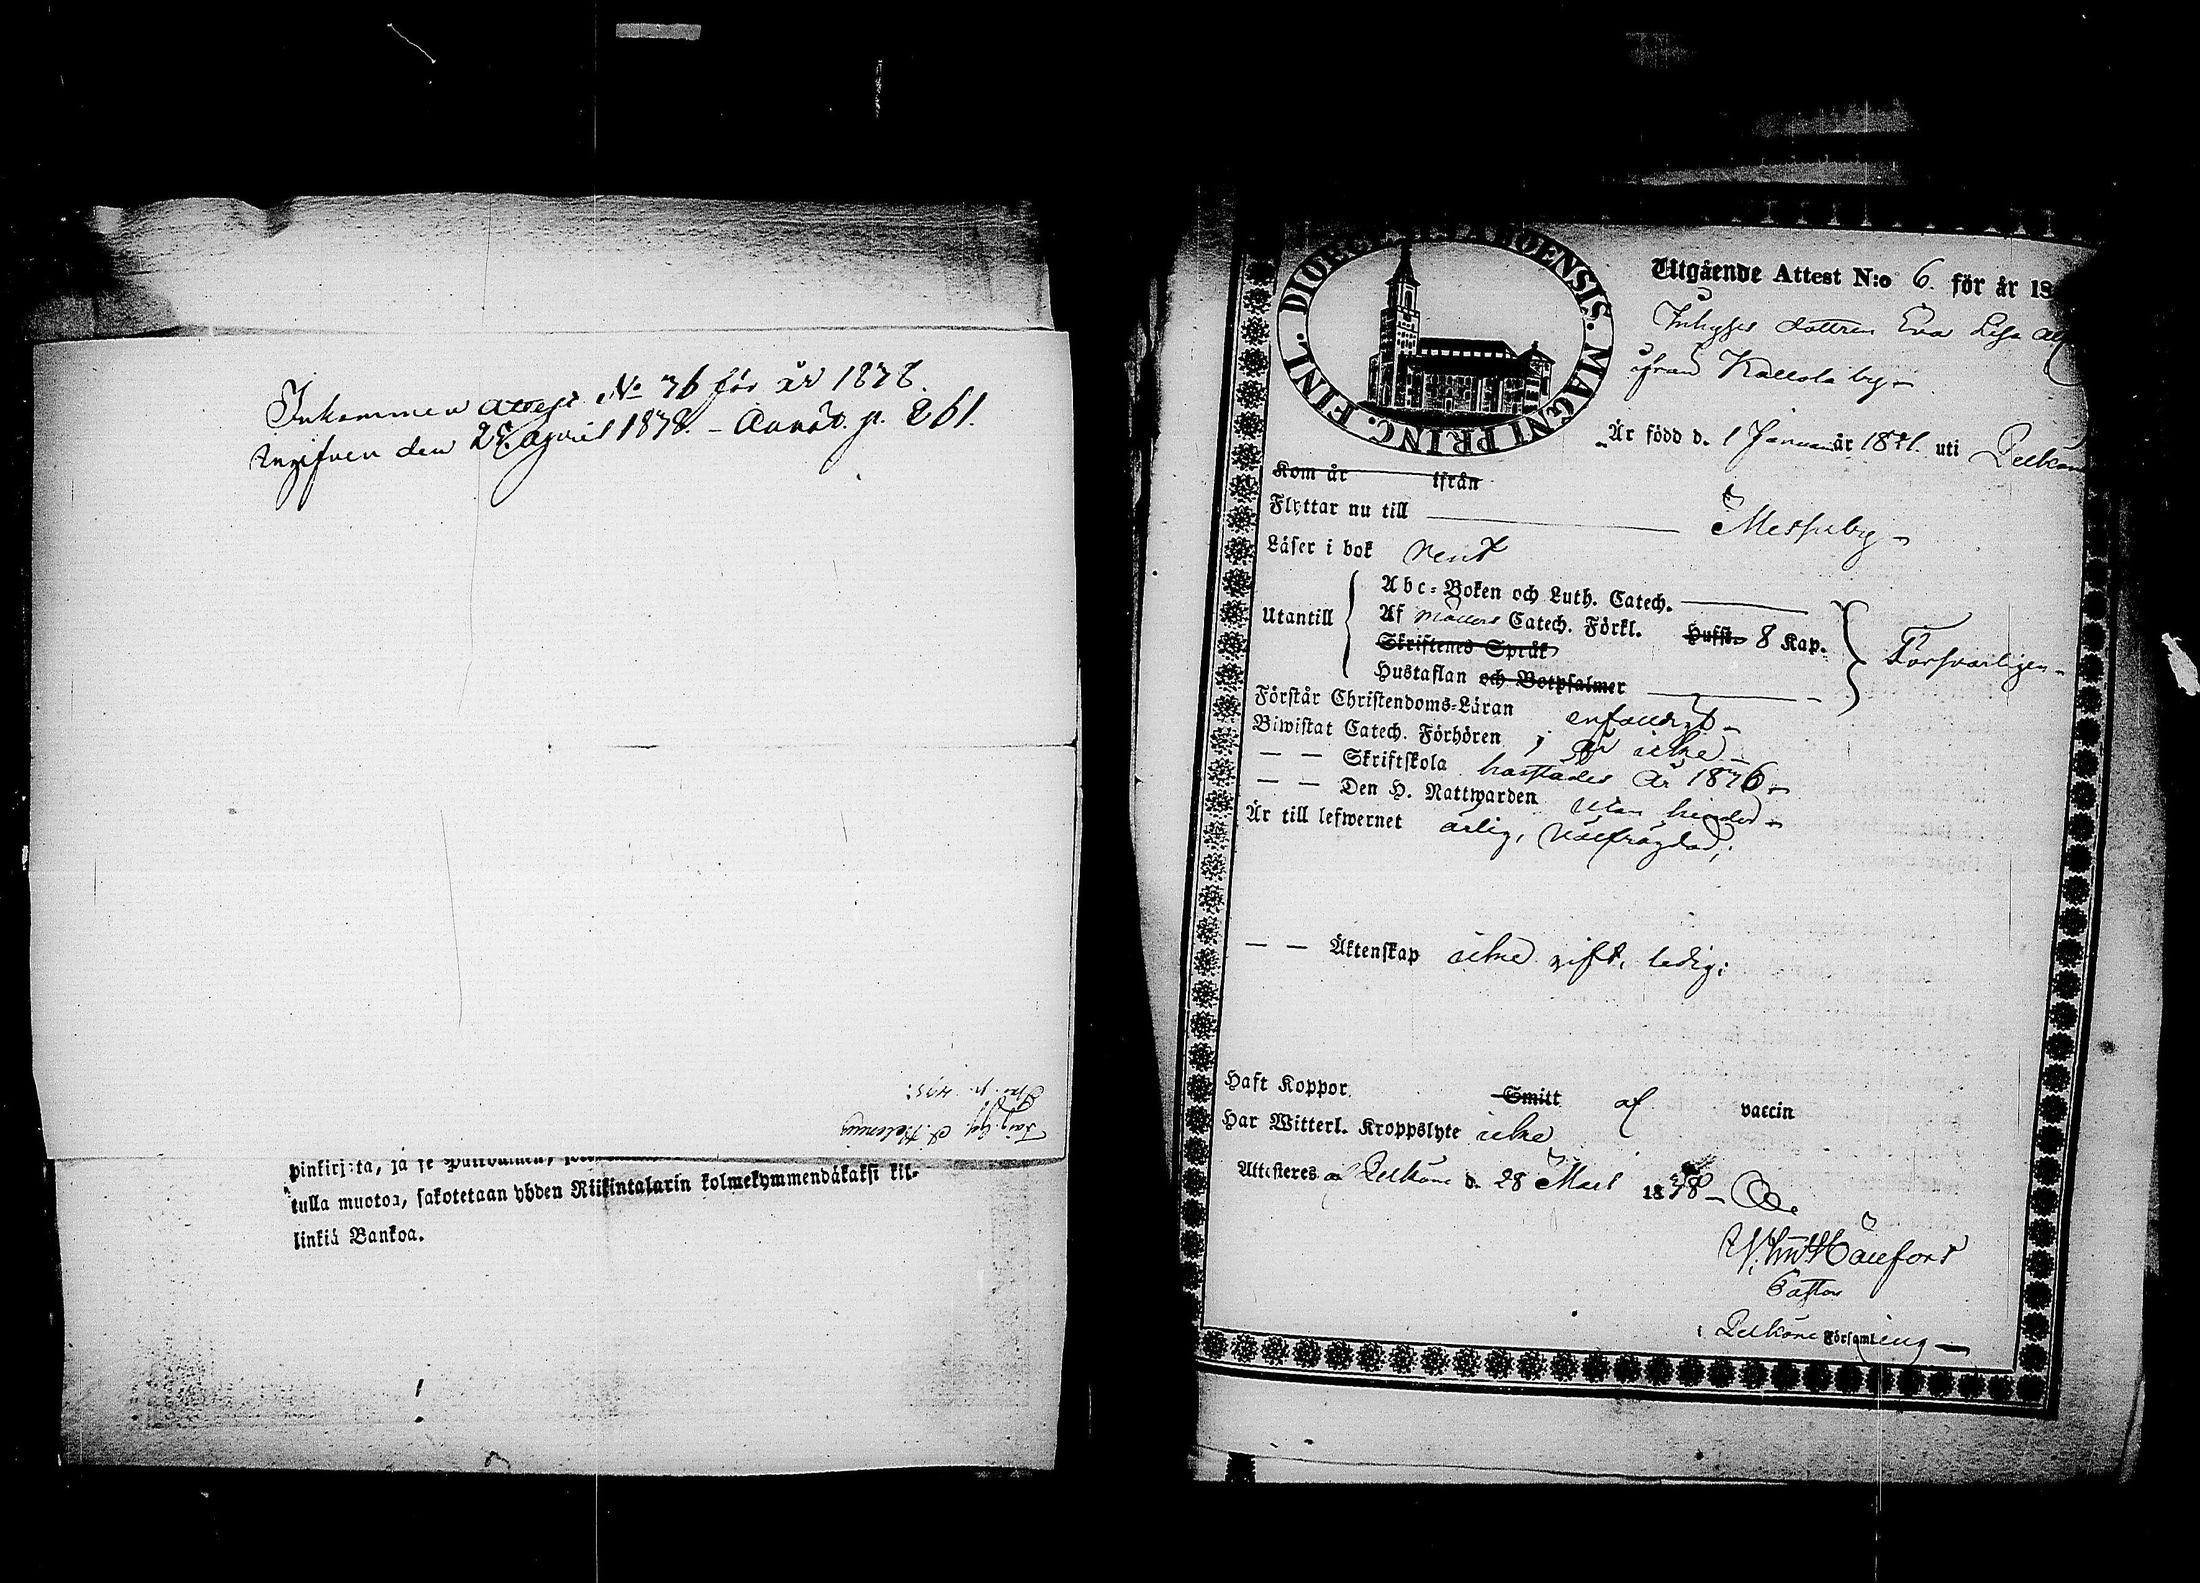 Inkommen attest No 76 för år 1878.
Ingifven den 25 April 1878. – Annot. p. 261.
pinkirjota, ja se
tulla muotoa, sakotetaan yhden Riikintalarin kolmekymmendäkaksi kil-
linkiä Bankoa.
DIOECESIS ABOENSIS. MAGNI PRINC. FINL.
Utgående Attest N:o 6. för år 18
Inhyses dottren Eva Lisa
ifrån Kallola by –
Är född d. 1 Januari år 18 uti Pelkäne
Kom år ifrån
Flyttar nu till Messuby –
Läser i bok rent
Utantill
Abc-Boken och Luth. Catech.
Af Möllers Catech. Förkl. Hufst. 8 Kap.
Skriftenes Språk
Hustaflan och Botpsalmer
Försvarligen –
Förstår Christendoms-Läran enfaldigt –
Biwistat Catech. Förhören i år icke –
— — Skriftskola härstädes år 1876 –
— — Den H. Nattwarden utan hinder –
Är till lefwernet ärlig, välfrägdad;
— — Äktenskap icke gift, ledig;
Haft Koppor Smitt af vaccin
Har Witterl. Kroppslyte icke
Attesteres af Pelkäne d. 28 Mars 1878 –
Pastor
i Pelkäne Församling —